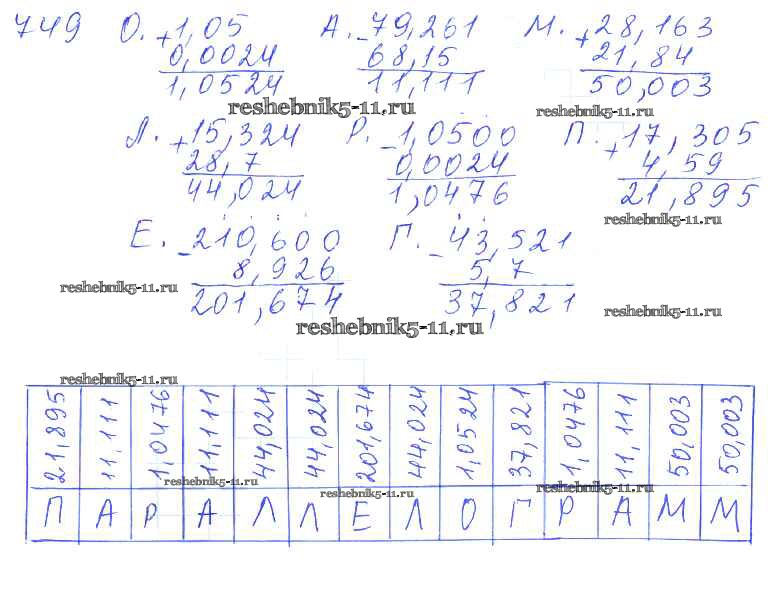 749 О. +1,05 А. -79,261 М. +28,163
0,0024 68,15 21,84
1,0524 11,111 50,003
reshebnik5-11.ru reshebnik5-11.ru
Л. +15,324 Р. -1,0500 П. +17,305
28,7 0,0024 4,59
44,024 1,0476 21,895
reshebnik5-11.ru
Е. -210,600 Г. -43,521
8,926 5,7
reshebnik5-11.ru
201,674 37,821
reshebnik5-11.ru
reshebnik5-11.ru
reshebnik5-11.ru
21,895 11,111 1,0476 11,111 44,024 44,024 201,674 44,024 1,0524 37,821 1,0476 11,111 50,003 50,003
reshebnik5-11.ru
reshebnik5-11.ru
reshebnik5-11.ru
П А Р А Л Л Е Л О Г Р А М М